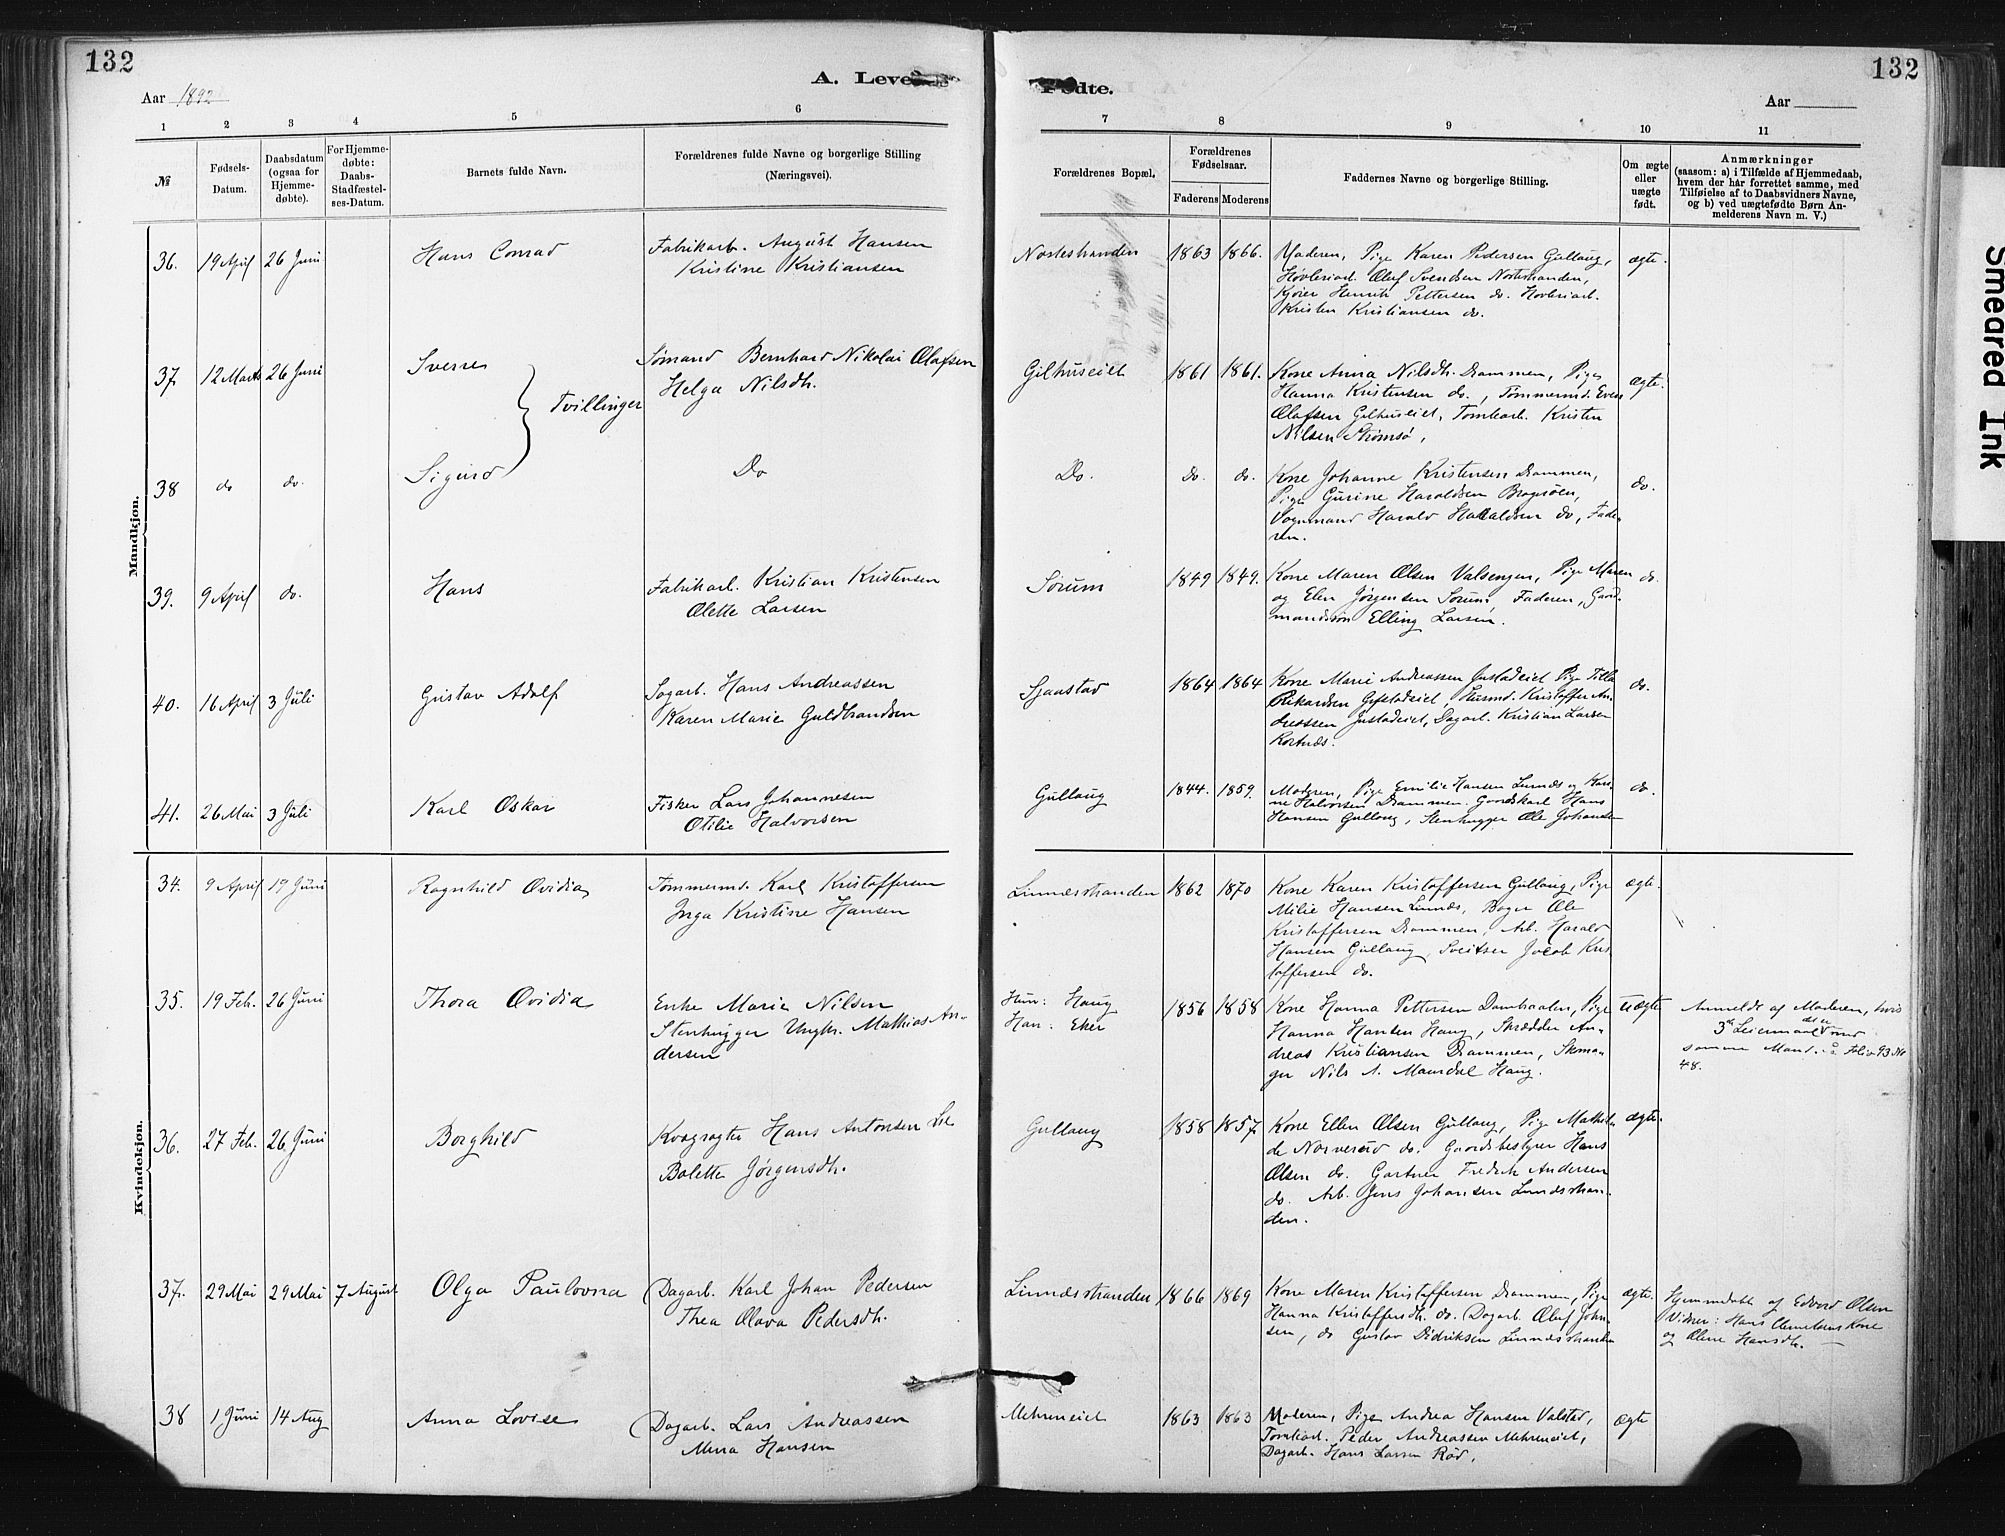 132
A. Leve
Aar 1892
1 2 3 4 5 6
№
Fødsels-
Datum.
Daabsdatum
(ogsaa for
Hjemme-
døbte).
For Hjemme-
døbte:
Daabs-
Stadfæstel-
ses-Datum.
Barnets fulde Navn.
Forældrenes fulde Navne og borgerlige Stilling
(Næringsvei).
Mandkjøn.
36. 19 April 26 Juni Hans Conrad Fabrikarb. August Hansen
Kristine Kristiansen
37 12 Marts 26 Juni Sverre Sømand Bernhard Nikolai Olafsen
Helga Nilsdh.
Tvillinger
38 do do. Sigurd Do
39. 9 April do. Hans Fabrikarb. Kristian Kristensen
Olette Larsen
40. 16 April 3 Juli Gustav Adolf Sagarb. Hans Andreassen
Karen Marie Guldbrandsen
41. 26 Mai 3 Juli Karl Oskar Fisker Lars Johannesen
Otilie Halvorsen
Kvindekjøn.
34. 9 April 19 Juni Ragnhild Ovidia Tømmermd. Karl Kristoffersen
Inga Kristine Hansen
35. 19 Feb. 26 Juni Thora Ovidia Enke Marie Nilsen
Stenhugger Ungk. Mathias An-
dersen
36. 27 Feb. 26 Juni Borghild Kvægrøgter Hans Antonsen
Bolette Jørgensdh.
37. 29 Mai 29 Mai 7 August Olga Paulovna Dagarb. Karl Johan Pedersen
Thea Olava Pedersdh.
38 1 Juni 14 Aug Anna Lovise Dagarb. Lars Andreassen
Mina Hansen
132
Fødte.
Aar
7 8 9 10 11
Forældrenes Bopæl.
Forældrenes
Fødselsaar.
Faderens Moderens
Faddernes Navne og borgerlige Stilling.
Om ægte
eller
uægte
født.
Anmærkninger
(saasom: a) i Tilfælde af Hjemmedaab,
hvem der har forrettet samme, med
Tilføielse af to Daabsvidners Navne,
og b) ved uægtefødte Børn An-
melderens Navn m. V.)
Nostestranden 1863 1866. Moderen, Pige Karen Pedersen Gullaug, ægte.
Høvleriarb. Oluf Svendsen Nostestranden,
Kjører Henrik Pettersen do. Høvleriarb.
Kristen Kristiansen do.
Gilhuseiet 1861 1861. Kone Anna Nilsdh. Drammen, Pige ægte.
Hanna Kristensen do., Tømmermd. Even
Olafsen Gilhuseiet, Tomtearb. Kristen
Nilsen Strømsø,
Do. do. do. Kone Johanne Kristensen Drammen, do.
Pige Gurine Haraldsen Bragøen,
Vognmand Harald Haraldsen do, Fade-
ren.
Sørum 1849 1849. Kone Maren Olsen Valsengen, Pige Maren do.
og Elen Jørgensen Sørum, Faderen, Gaard-
mandssøn Elling Larsen.
Sjaastad 1864 1864 Kone Marie Andreassen Justadeiet Pige Tilla do.
Rikardsen Gjestadeiet, Husmd. Kristoffer An-
dreassen Justadeiet, Dagarb. Kristian Larsen
Kortnes.
Gullaug 1844. 1859. Moderen, Pige Emilie Hansen Linnæs og Kari- do.
ne Halvorsen Drammen. Gaardskarl Hans
Hansen Gullaug, Stenhugger Ole Johansen
Linnæsstranden 1862 1870 Kone Karen Kristoffersen Gullaug, Pige ægte.
Milie Hansen Linnæs, Bager Ole
Kristoffersen Drammen, Arb. Harald
Hansen Gullaug, Sveitser Jacob Kris
toffersen do.
Hun: Haug
Han: Eker
1856 1858 Kone Hanna Pettersen Damhaalen, Pige uægte
Hanna Hansen Haug, Skrædder An-
dreas Kristiansen Drammen, Skma-
ger Nils A. Mansdal Haug.
Anmeldt af Moderen, hvis
3die Leiermaal det er med
samme Mand. Folio 93 No
48.
Gullaug 1858 1857 Kone Ellen Olsen Gullaug, Pige Mathil- ægte.
de Norverud do. Gaardsbestyrer Hans
Olsen do. Gartner Fredrik Andersen
do. Arb. Jens Johansen Linnæsstran-
den.
Linnæsstranden 1866 1869 Kone Maren Kristoffersen Drammen, Pige ægte.
Hanna Kristoffersdh. do. Dagarb. Oluf John-
sen, do Gustav Didriksen Linnæsstranden
Hjemmedøbt af Edvard Olsen
Vidner: Hans Clemetsens Kone
og Oline Hansdh.
Mehreneiet 1863 1863 Moderen, Pige Andrea Hansen Valstad, Ægte
Tomtearb. Peder Andreassen Mehreneiet,
Dagarb. Hans Larsen Rød.
Smeared Ink